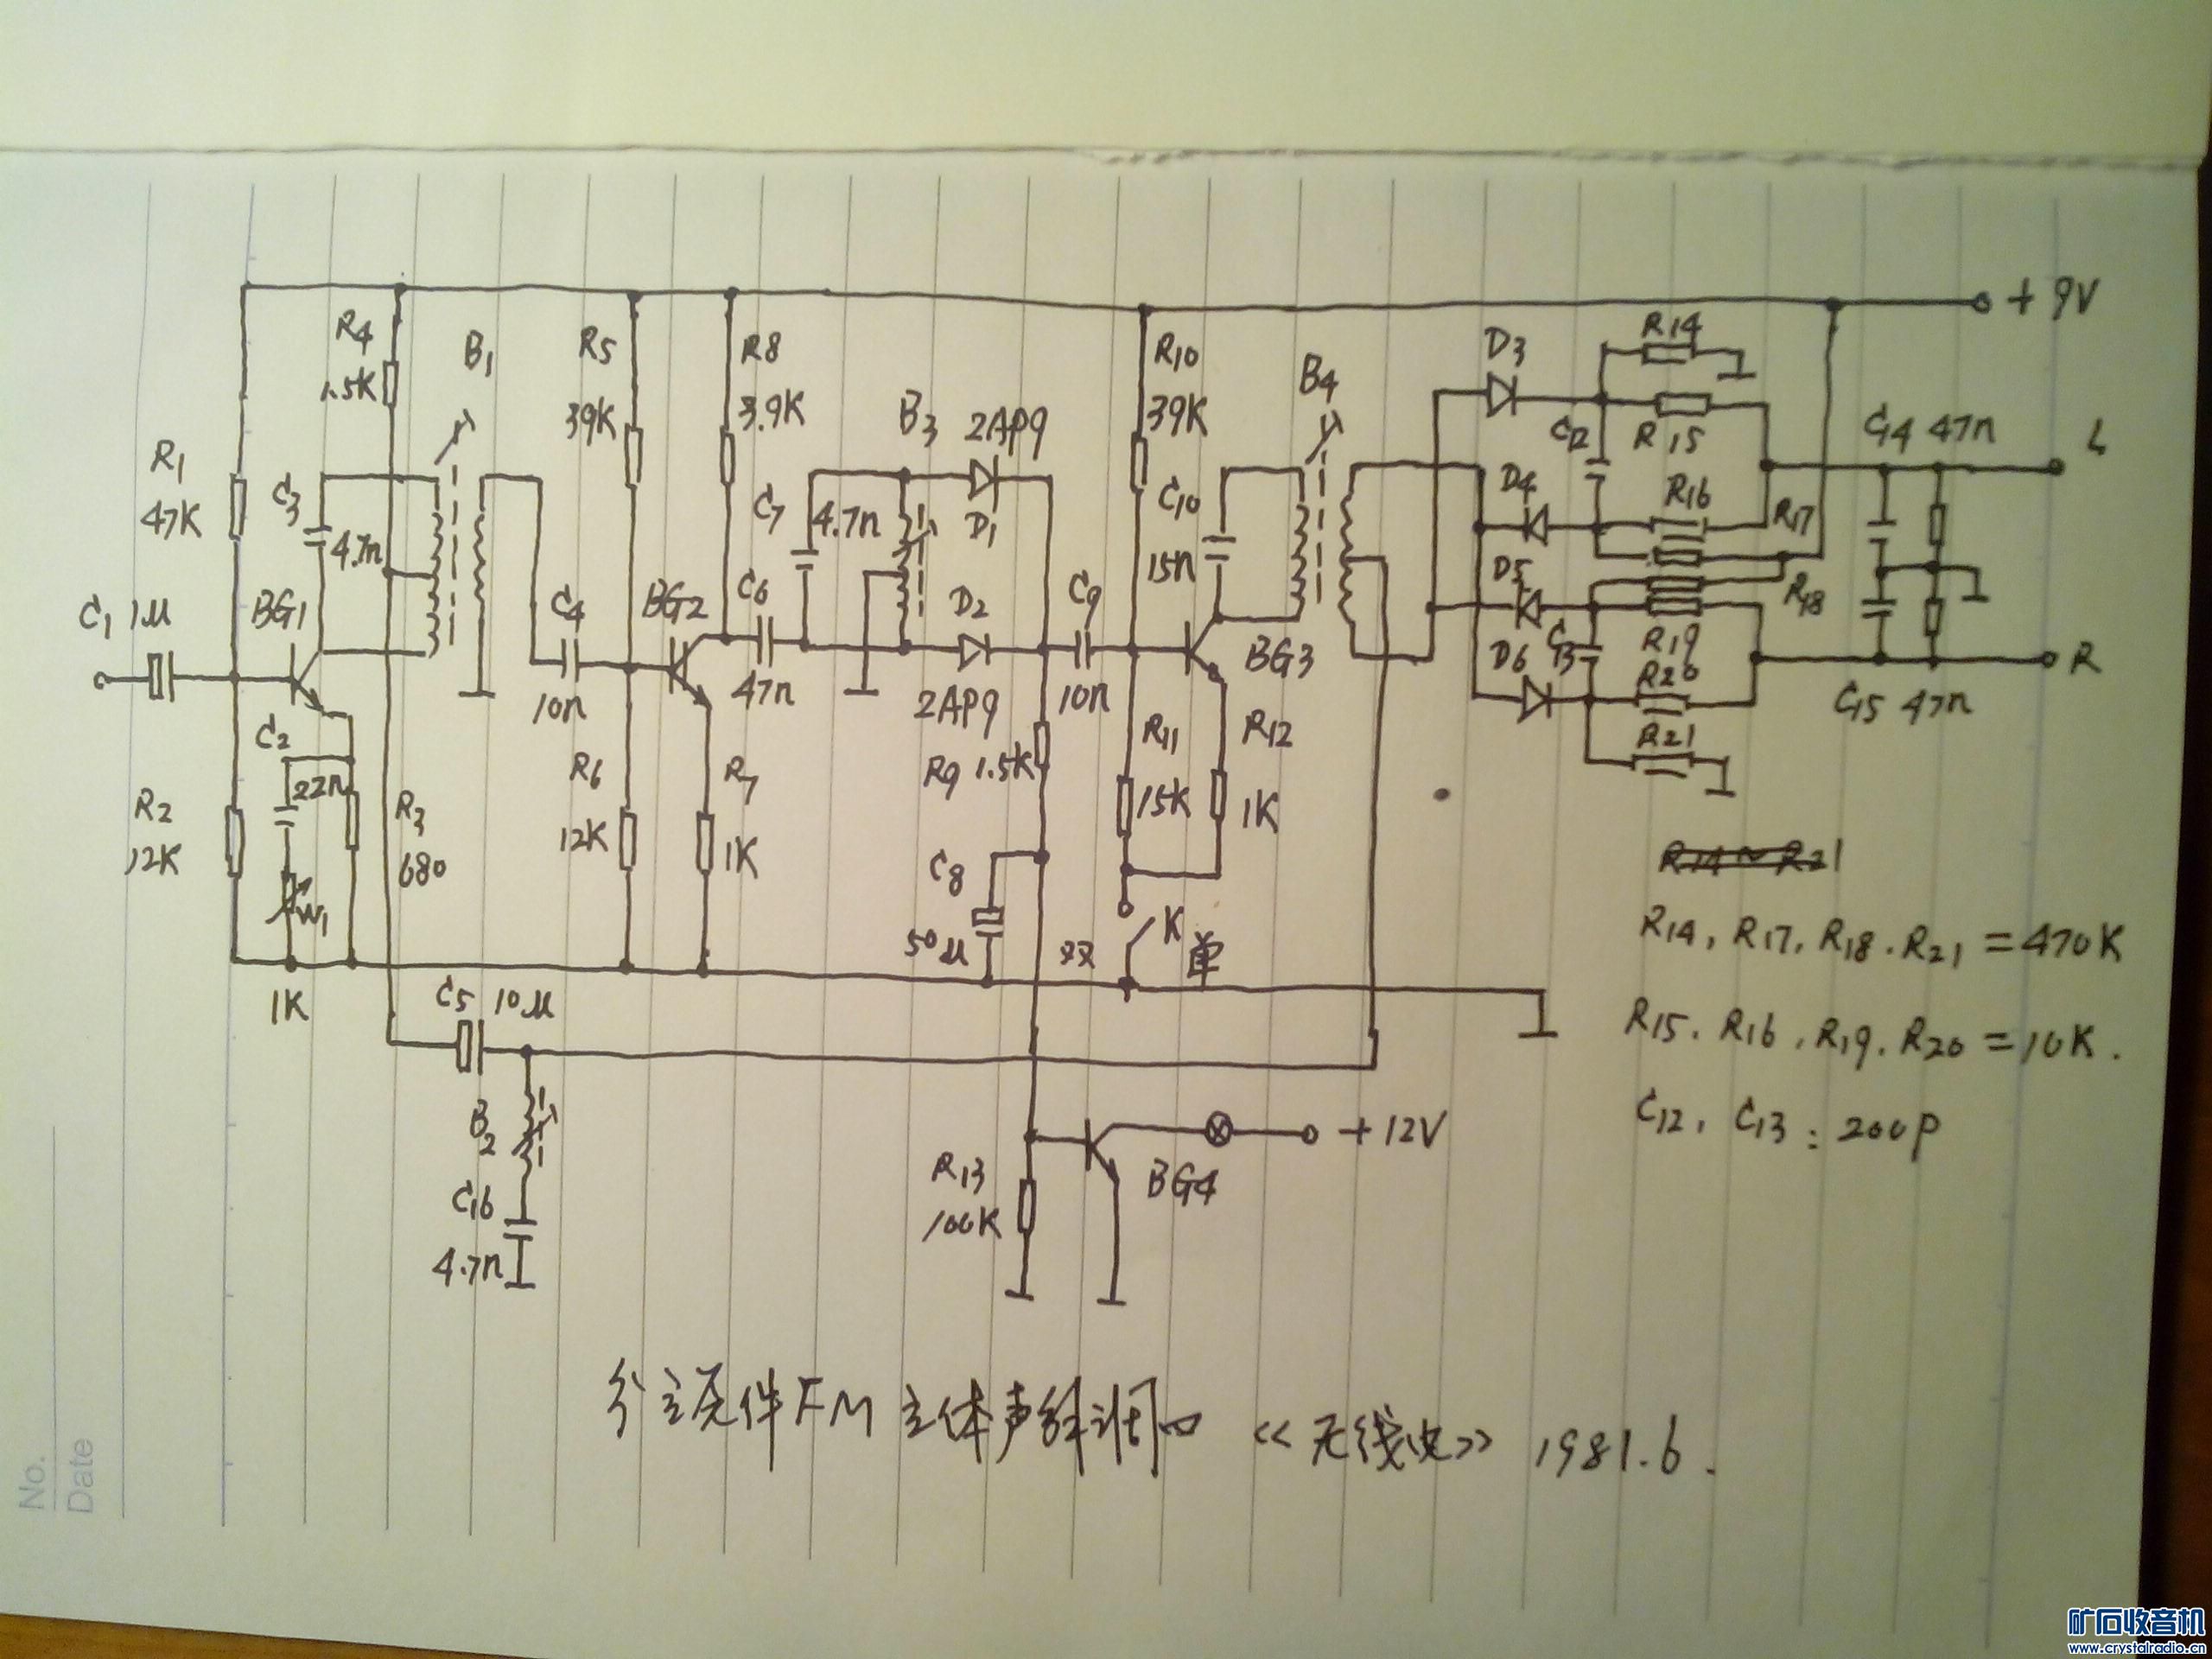 + 9V
R14
D3
R4
1.5K
B1
R5
39K
R8
3.9K
B3
2AP9
R10
39K
B4
C12
R15
C14 47n
L
R1
47K
C3
4.7n
C7
4.7n
D1
C10
15n
D4
R16
R17
D5
R18
C1 1μ
BG1
C4
10n
BG2
C6
47n
D2
2AP9
C9
10n
BG3
D6
C13
R19
R20
R
C15 47n
C2
22n
R2
12K
R3
680
W1
1K
R6
12K
R7
1K
R9 1.5K
R11
15K
R12
1K
R21
C8
50μ
双
K
单
R14, R17, R18. R21 = 470K
R15. R16, R19. R20 = 10K.
C12, C13: 200P
C5 10μ
B2
C16
4.7n
R13
100K
BG4
+ 12V
分立元件FM立体声解调 《无线电》 1981.6.
No.
Date
矿石收音机
www.crystalradio.cn